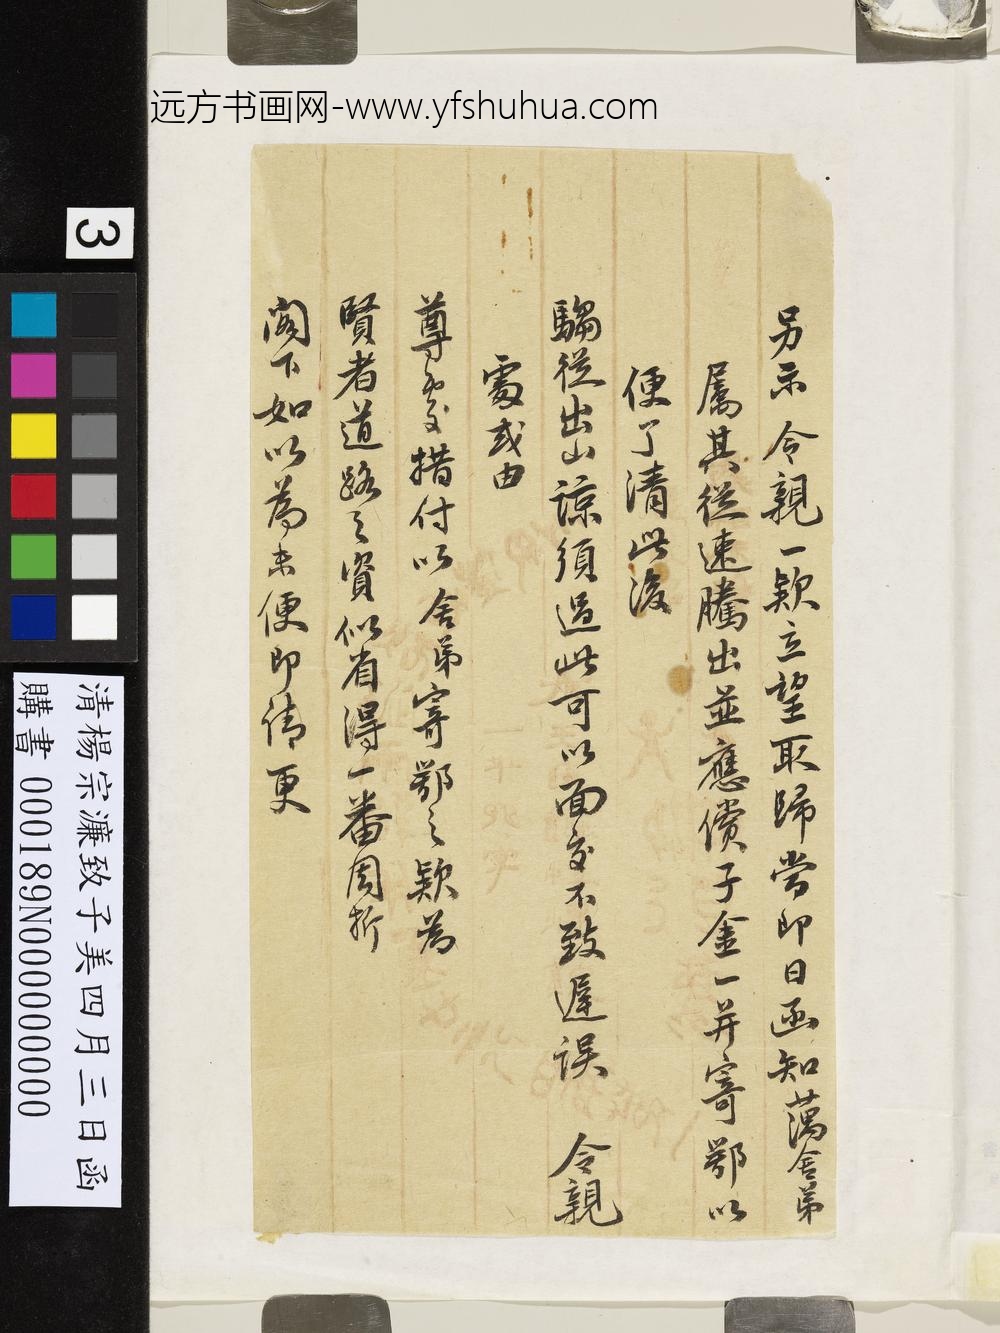 远方书画网-www.yfshuhua.com
3
另示 令親一欵立望取歸當即日函知藕舍弟
屬其從速騰出並應償子金一并寄鄂以
便了清此後
騶從出山諒須過此可以面交不致遲误 令親
處或由
尊處措付以舍弟寄鄂之欵為
賢者道路之資似省得一番周折
閣下如以為未便即請更
清楊宗濂致子美四月三日函
購書 000189N000000000